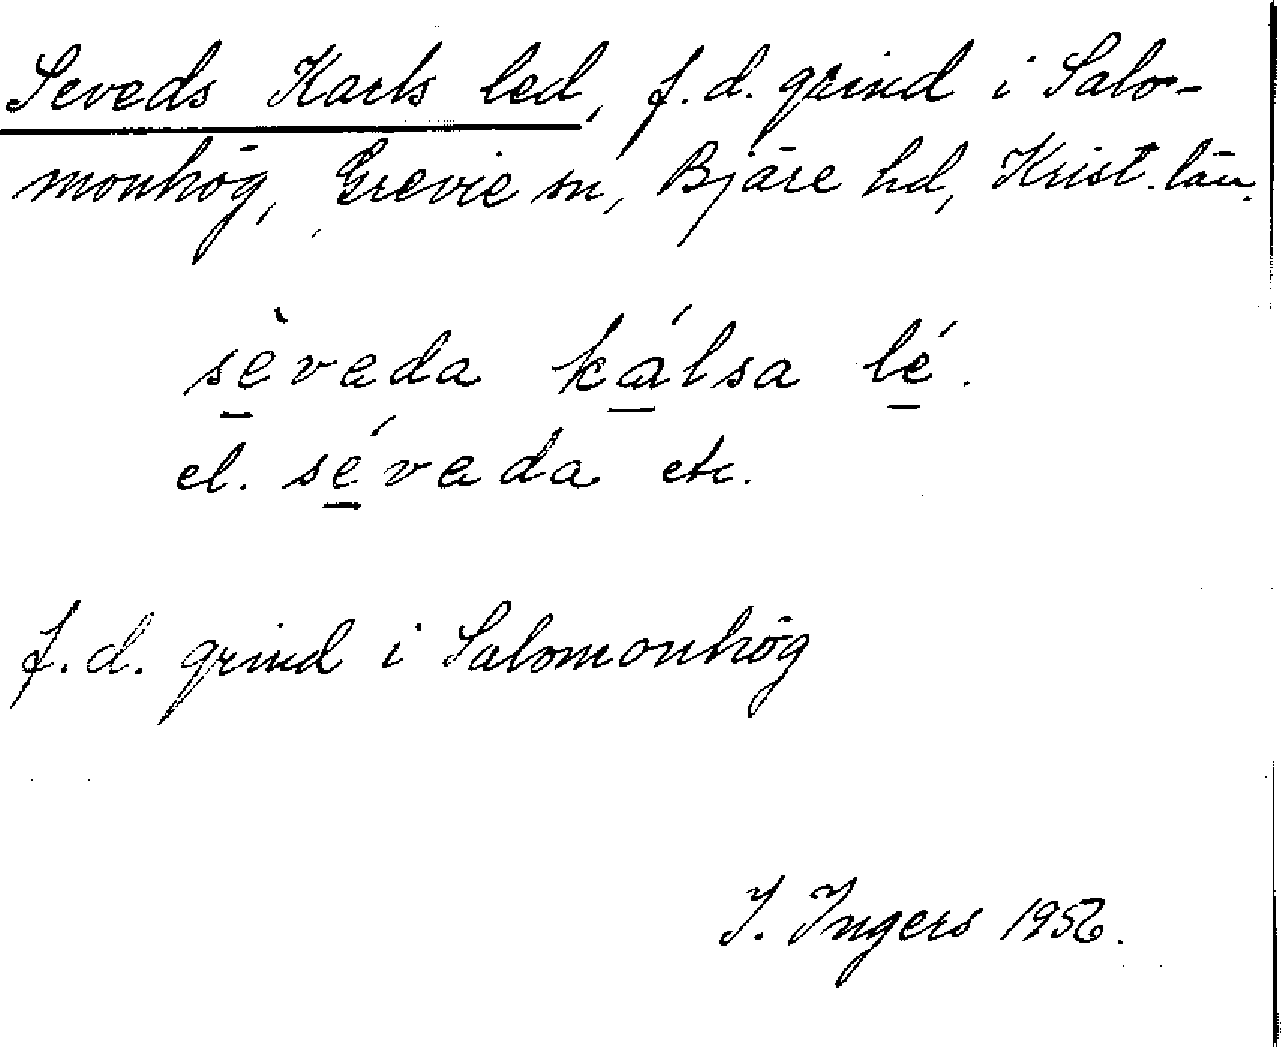 Seveds Karls led, f.d. grind i Salo-
monhög, Grevie sn, Bjäre hd, Krist. län.
sèveda kálsa lé.
el. séveda etc.
f.d. grind i Salomonhög
I. Ingers 1956.